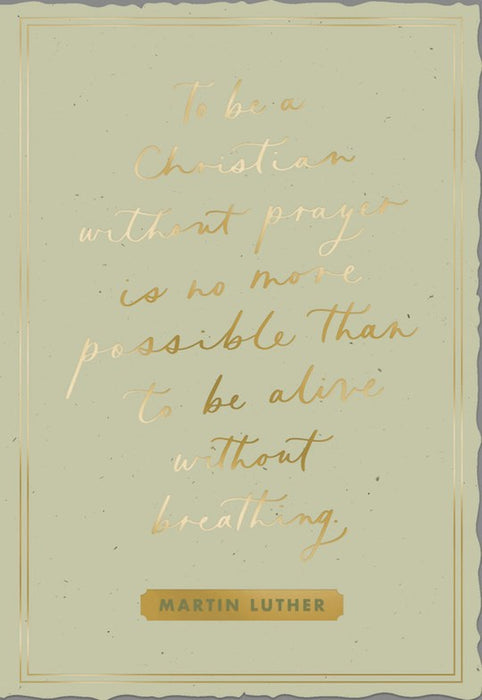 To be a
Christian
without prayer
is no more
possible than
to be alive
without
breathing.
MARTIN LUTHER